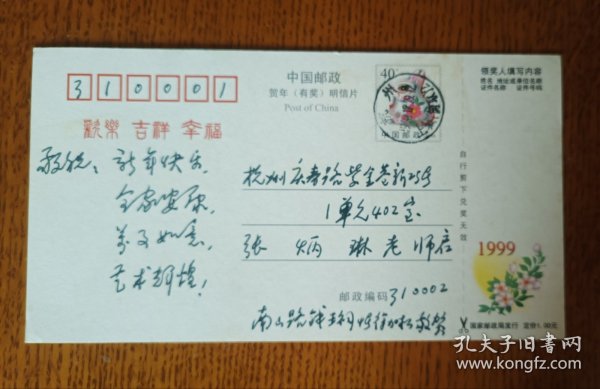 中国邮政
贺年（有奖）明信片
Post of China
310001
欢乐 吉祥 幸福
40
中国邮政
敬祝：新年快乐
全家安康，
万事如意，
艺术辉煌！
杭州庆春路紫金巷新25号
1单元402室
张炳琳老师启
邮政编码310002
南山路
领奖人填写内容
姓名 地址或单位名称
证件名称 证件号码
自行剪下兑奖无效
1999
国家邮政局发行 定价1.00元
孔夫子旧书网
www.kongfz.com